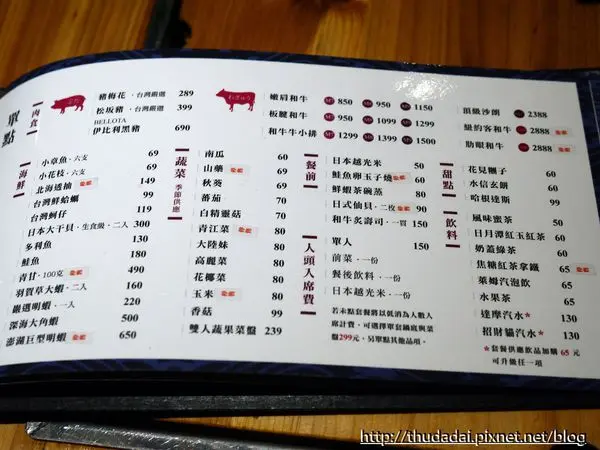 單點
肉食
豬梅花・台灣嚴選 289
松坂豬・台灣嚴選 399
BELLOTA
伊比利黑豬 690
嫩肩和牛 850 950 1150
板腱和牛 950 1099 1299
和牛牛小排 1299 1399 1500
頂級沙朗 2388
紐約客和牛 2888
肋眼和牛 2888
海鮮
小章魚・六支 69
小花枝・六支 69
北海透抽 149
台灣鮮蛤蠣 99
台灣蚵仔 119
日本大干貝・生食級・二入 300
多利魚 130
鮭魚 180
青甘・100克 490
羽賀草大蝦・二入 160
嚴選明蝦・一入 220
深海大角蝦 500
澎湖巨型明蝦 650
蔬菜
季節供應
南瓜 60
山藥
秋葵 60
蕃茄 70
白精靈菇 60
青江菜
大陸妹 60
高麗菜 60
花椰菜 60
玉米
香菇 99
雙人蔬果菜盤 239
餐前
日本越光米 50
鮭魚卵玉子燒 60
鮮蝦茶碗蒸 80
日式仙貝・二枚 90
和牛炙壽司・一貫 150
人頭入席費
單人 150
前菜・一份
餐後飲料・一份
日本越光米・一份
若未點套餐將以低消為人數入
席計費,可選擇單套鍋底與菜
盤299元,另單點其他品項。
甜點
花見糰子 50
水信玄餅 60
哈根達斯 99
飲料
風味蜜茶 50
日月潭紅玉紅茶 60
奶蓋綠茶 60
焦糖紅茶拿鐵 65
萊姆汽泡飲 65
水果茶 65
達摩汽水* 130
招財貓汽水* 130
*套餐供應飲品加購 65 元
可升做任一項
http://thudadai.pixnet.net/blog